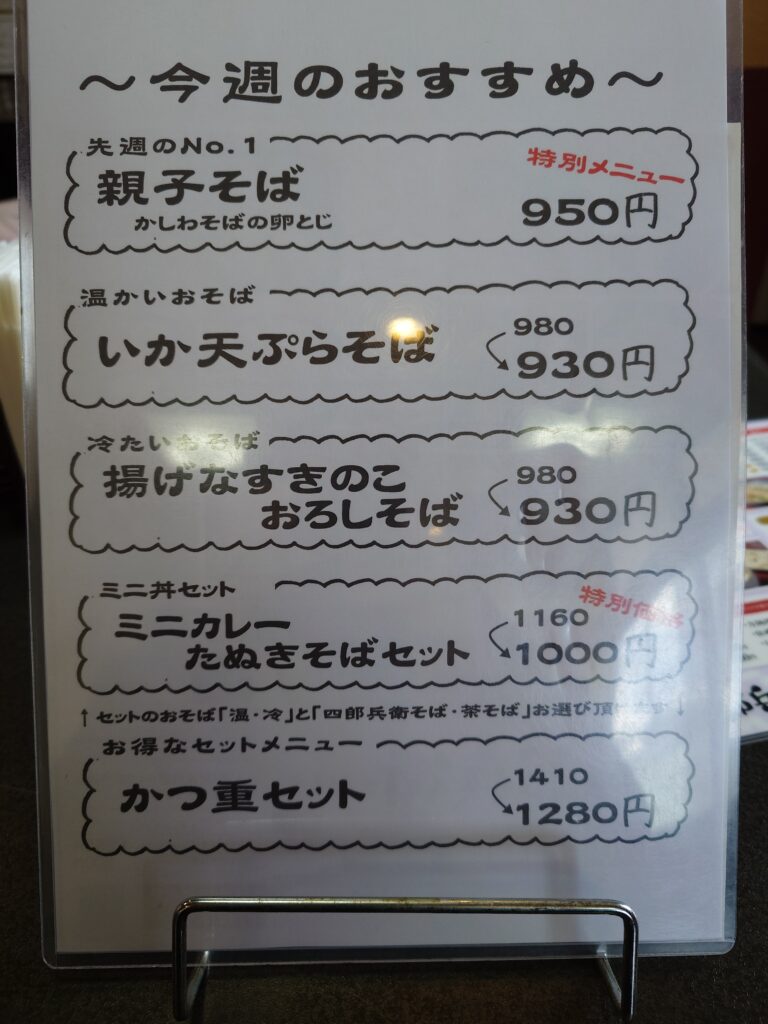 ～今週のおすすめ～
先週のNo.1
特別メニュー
親子そば
かしわそばの卵とじ
950円
温かいおそば
いか天ぷらそば
980
930円
冷たいおそば
揚げなすきのこ
おろしそば
980
930円
ミニ丼セット
特別価格
ミニカレー
たぬきそばセット
1160
1000円
↑セットのおそば「温・冷」と「四郎兵衛そば・茶そば」お選び頂けます↓
お得なセットメニュー
かつ重セット
1410
1280円